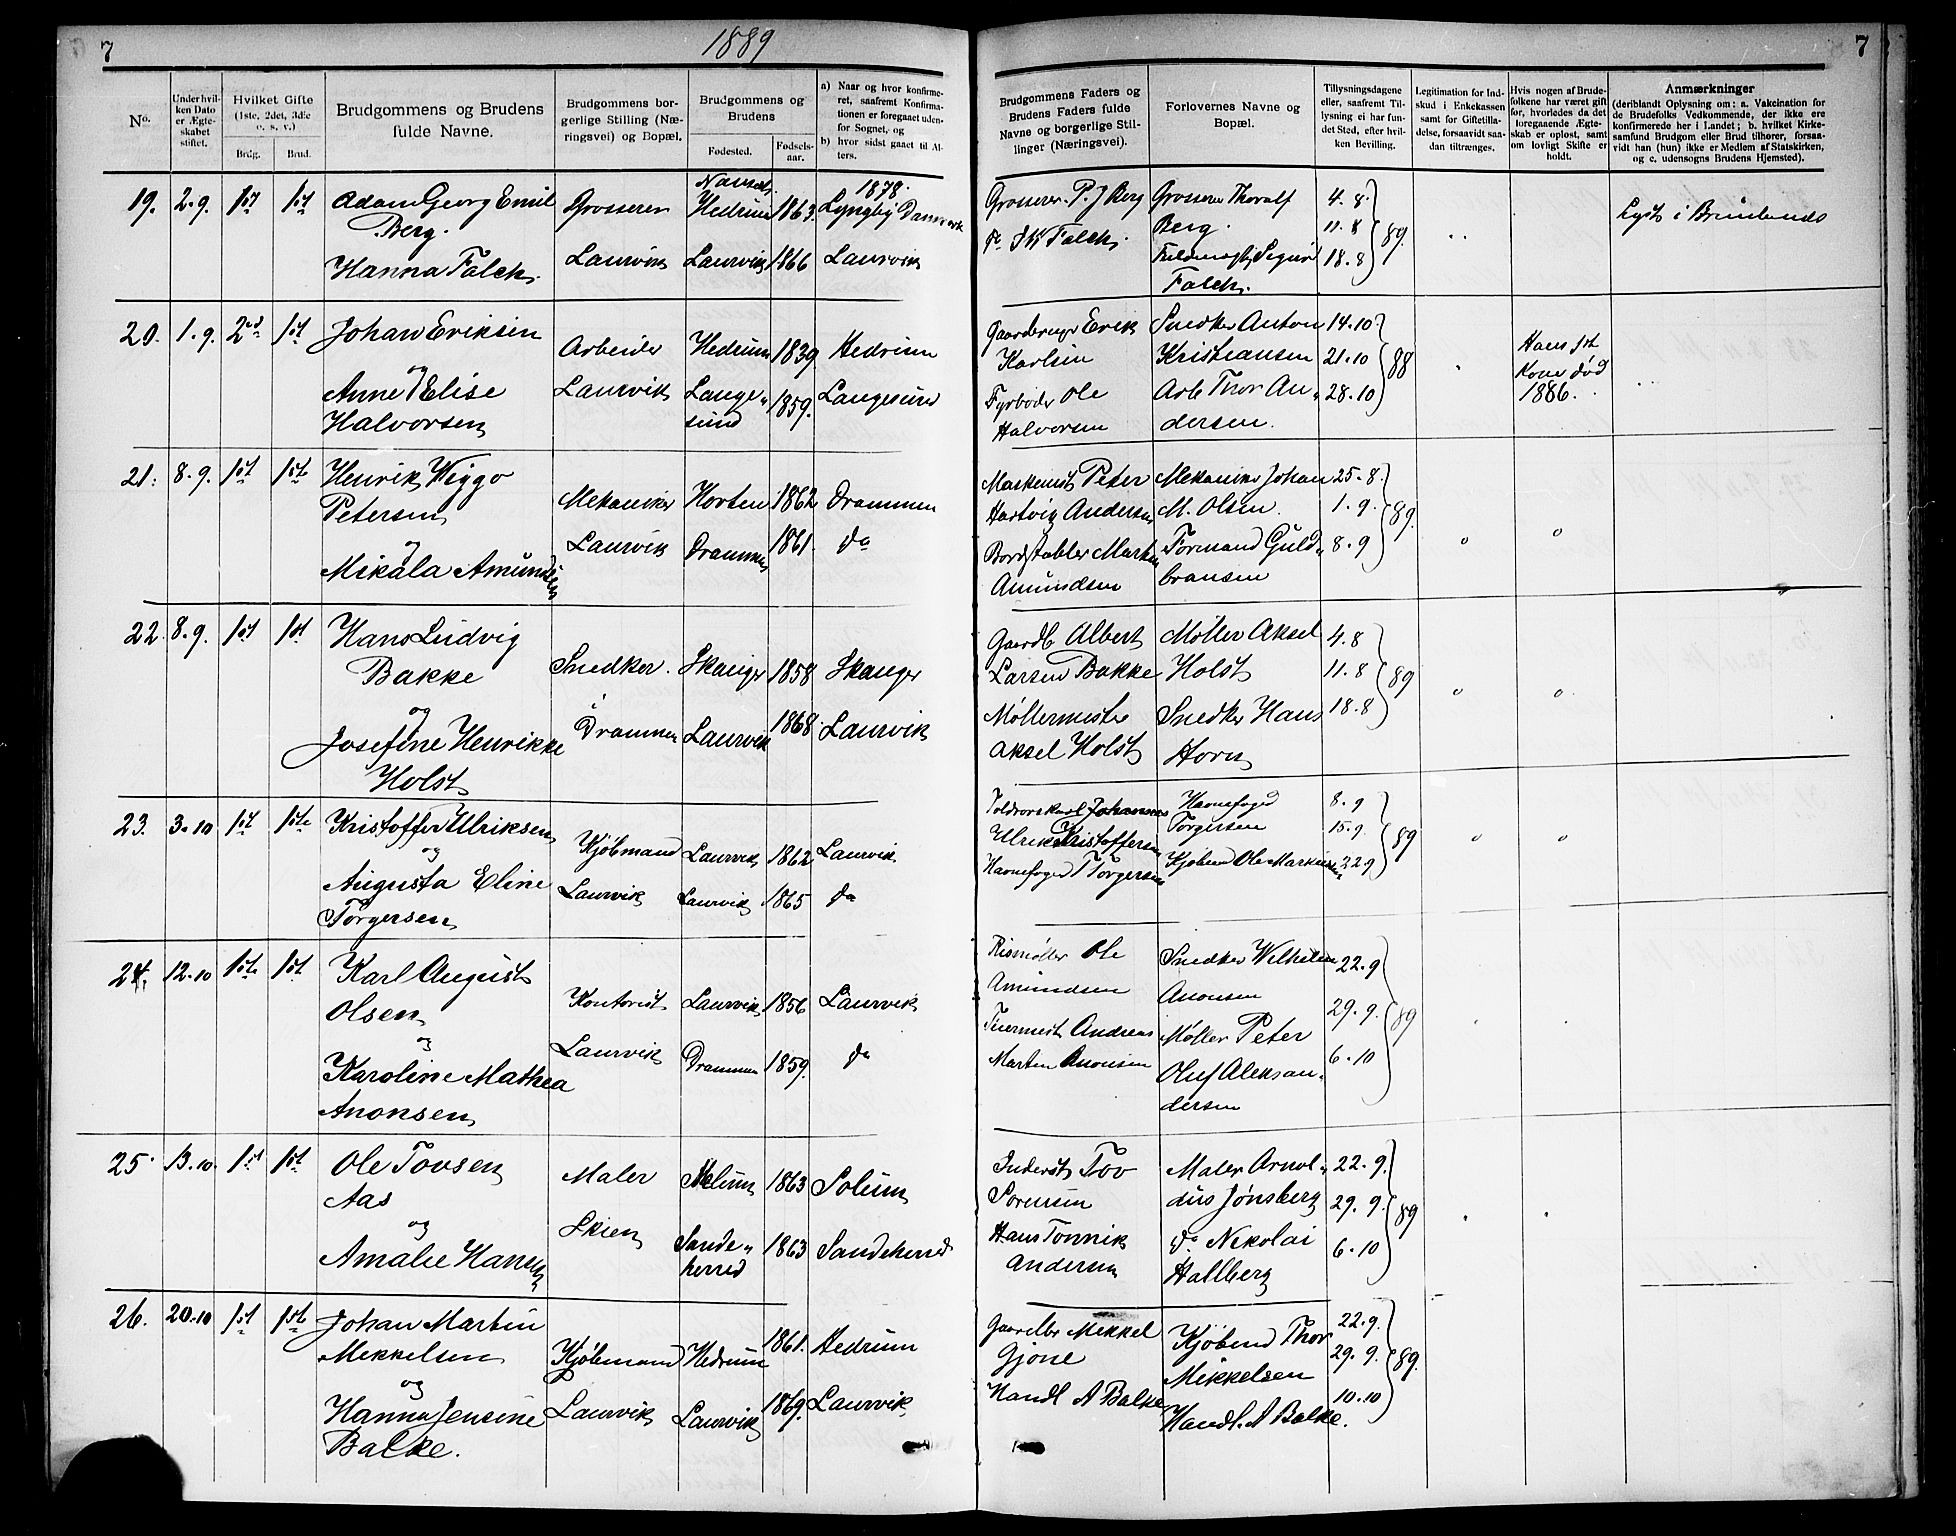 7
1889
No.
Under hvil-
ken Dato
er Ægte-
skabet
stiftet.
Hvilket Gifte
(1ste, 2det, 3die
o. s. v.)
Brdg.
Brud.
Brudgommens og Brudens
fulde Navne.
Brudgommens bor-
gerlige Stilling (Næ-
ringsvei) og Bopæl.
Brudgommens og
Brudens
Fødested.
Fødsels-
aar.
a) Naar og hvor konfirme-
ret, saafremt Konfirma-
tionen er foregaaet uden-
for Sognet, og
b) hvor sidst gaaet til Al-
ters.
19. 2.9. 1st 1st Adam Georg Emil Grosserer Hedrum 1863 1878. Lyngby Danmark
Berg.
Hanna Falck. Laurvik Laurvik 1866 Laurvik
20. 1.9. 2ed 1st Johan Eriksen Arbeider Hedrum 1839 Hedrum
og
Anne Elise Laurvik Lange- 1859. Langesund
Halvorsen sund
21. 8.9. 1st 1ste Henrik Wiggo Mekaniker Horten 1862 Drammen
Petersen
og Laurvik Drammen 1861. do
Mikala Amundsen
22. 8.9. 1st 1st Hans Ludvig Snedker. Skauger 1858 Skauger
Bakke
og i Drammen Laurvik 1868. Laurvik
Josefine Henrikke
Holst
23. 3.10 1st 1ste Kristoffer Ulriksen Kjøbmand Laurvik 1862 Laurvik.
og
Augusta Eline Laurvik Laurvik 1865 do
Torgersen
24. 12.10 1ste 1st Karl August Kontorist Laurvik 1856 Laurvik
Olsen
og Laurvik Drammen 1859. do
Karoline Mathea
Anonsen
25. 13.10. 1st 1st Ole Tovsen Maler Melum 1863 Solum
Aas
og Skien Sande- 1863 Sandeherred
Amalie Hansen herred
26. 20.10 1st 1ste Johan Martin Kjøbmand Hedrum 1861. Hedrum
Mekkelsen
og
Hanna Jensine Laurvik Laurvik 1869. Laurvik
Balke.
7
Brudgommens Faders og
Brudens Faders fulde
Navne og borgerlige Stil-
linger (Næringsvei).
Forlovernes Navne og
Bopæl.
Tillysningsdagene
eller, saafremt Til-
lysning ei har fun-
det Sted, efter hvil-
ken Bevilling.
Legitimation for Ind-
skud i Enkekassen
samt for Giftetilla-
delse, forsaavidt saa-
dan tiltrænges.
Hvis nogen af Brude-
folkene har været gift
før, hvorledes da det
foregaaende Ægte-
skab er opløst, samt
om lovligt Skifte er
holdt.
Anmærkninger
(deriblandt Oplysning om: a. Vakcination for
de Brudefolks Vedkommende, der ikke ere
konfirmerede her i Landet; b. hvilket Kirke-
samfund Brudgom eller Brud tilhører, forsaa-
vidt han (hun) ikke er Medlem af Statskirken,
og c. udensogns Brudens Hjemsted).
Grosserer P. J Berg Grosserer Thoralf 4.8. Lyst i Brunlanes
do J K Falck. Berg. 11.8 89.
Sigurd 18.8
Falck.
Gaardbruger Erik Snedker Anton 14.10 Hans 1st
Karlsen Kristiansen 21.10 88 Kone død
Fyrbøder Ole Arb Thor An- 28.10 1886.
Halvorsen dersen.
Maskinist Peter Mekaniker Johan 25.8.
Hartvig Andersen M. Olsen. 1.9. 89.
Bordstabler Martin Formand Guld- 8.9
Amundsen bransen
Gaardb Albert Møller Aksel 4.8
Larsen Bakke Holst 11.8 89
Møllermester Snedker Hans 18.8
Aksel Holst Horn
Johannes Havnefoged 8.9
Ulrik Kristoffersen Torgersen 15.9. 89
Havnefoged T Torgersen Kjøbmd Ole Markussen 22.9
Rismøller Ole Snedker Wilhelm 22.9
Amundsen Anonsen 29.9. 89
Andreas Møller Peter
Martin Anonsen Oluf Aleksan- 6.10
dersen
Inderst Tov Maler Arnol- 22.9.
Sorensen dus Jønsberg 29.9. 89
Hans Tonnik do Nikolai 6.10
Andersen Hallberg
Mekkel Kjøbmd Thor 22.9.
Gjone Mikkelsen 29.9. 89.
Handl A Balke Handl. A Balke. 10.10